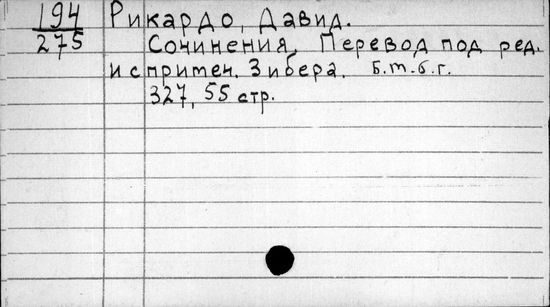 194 Рикардо, Давид.
275 Сочинения. Перевод под ред.
и с примеч. Зибера. Б.т.-б.г.
327, 55 стр.